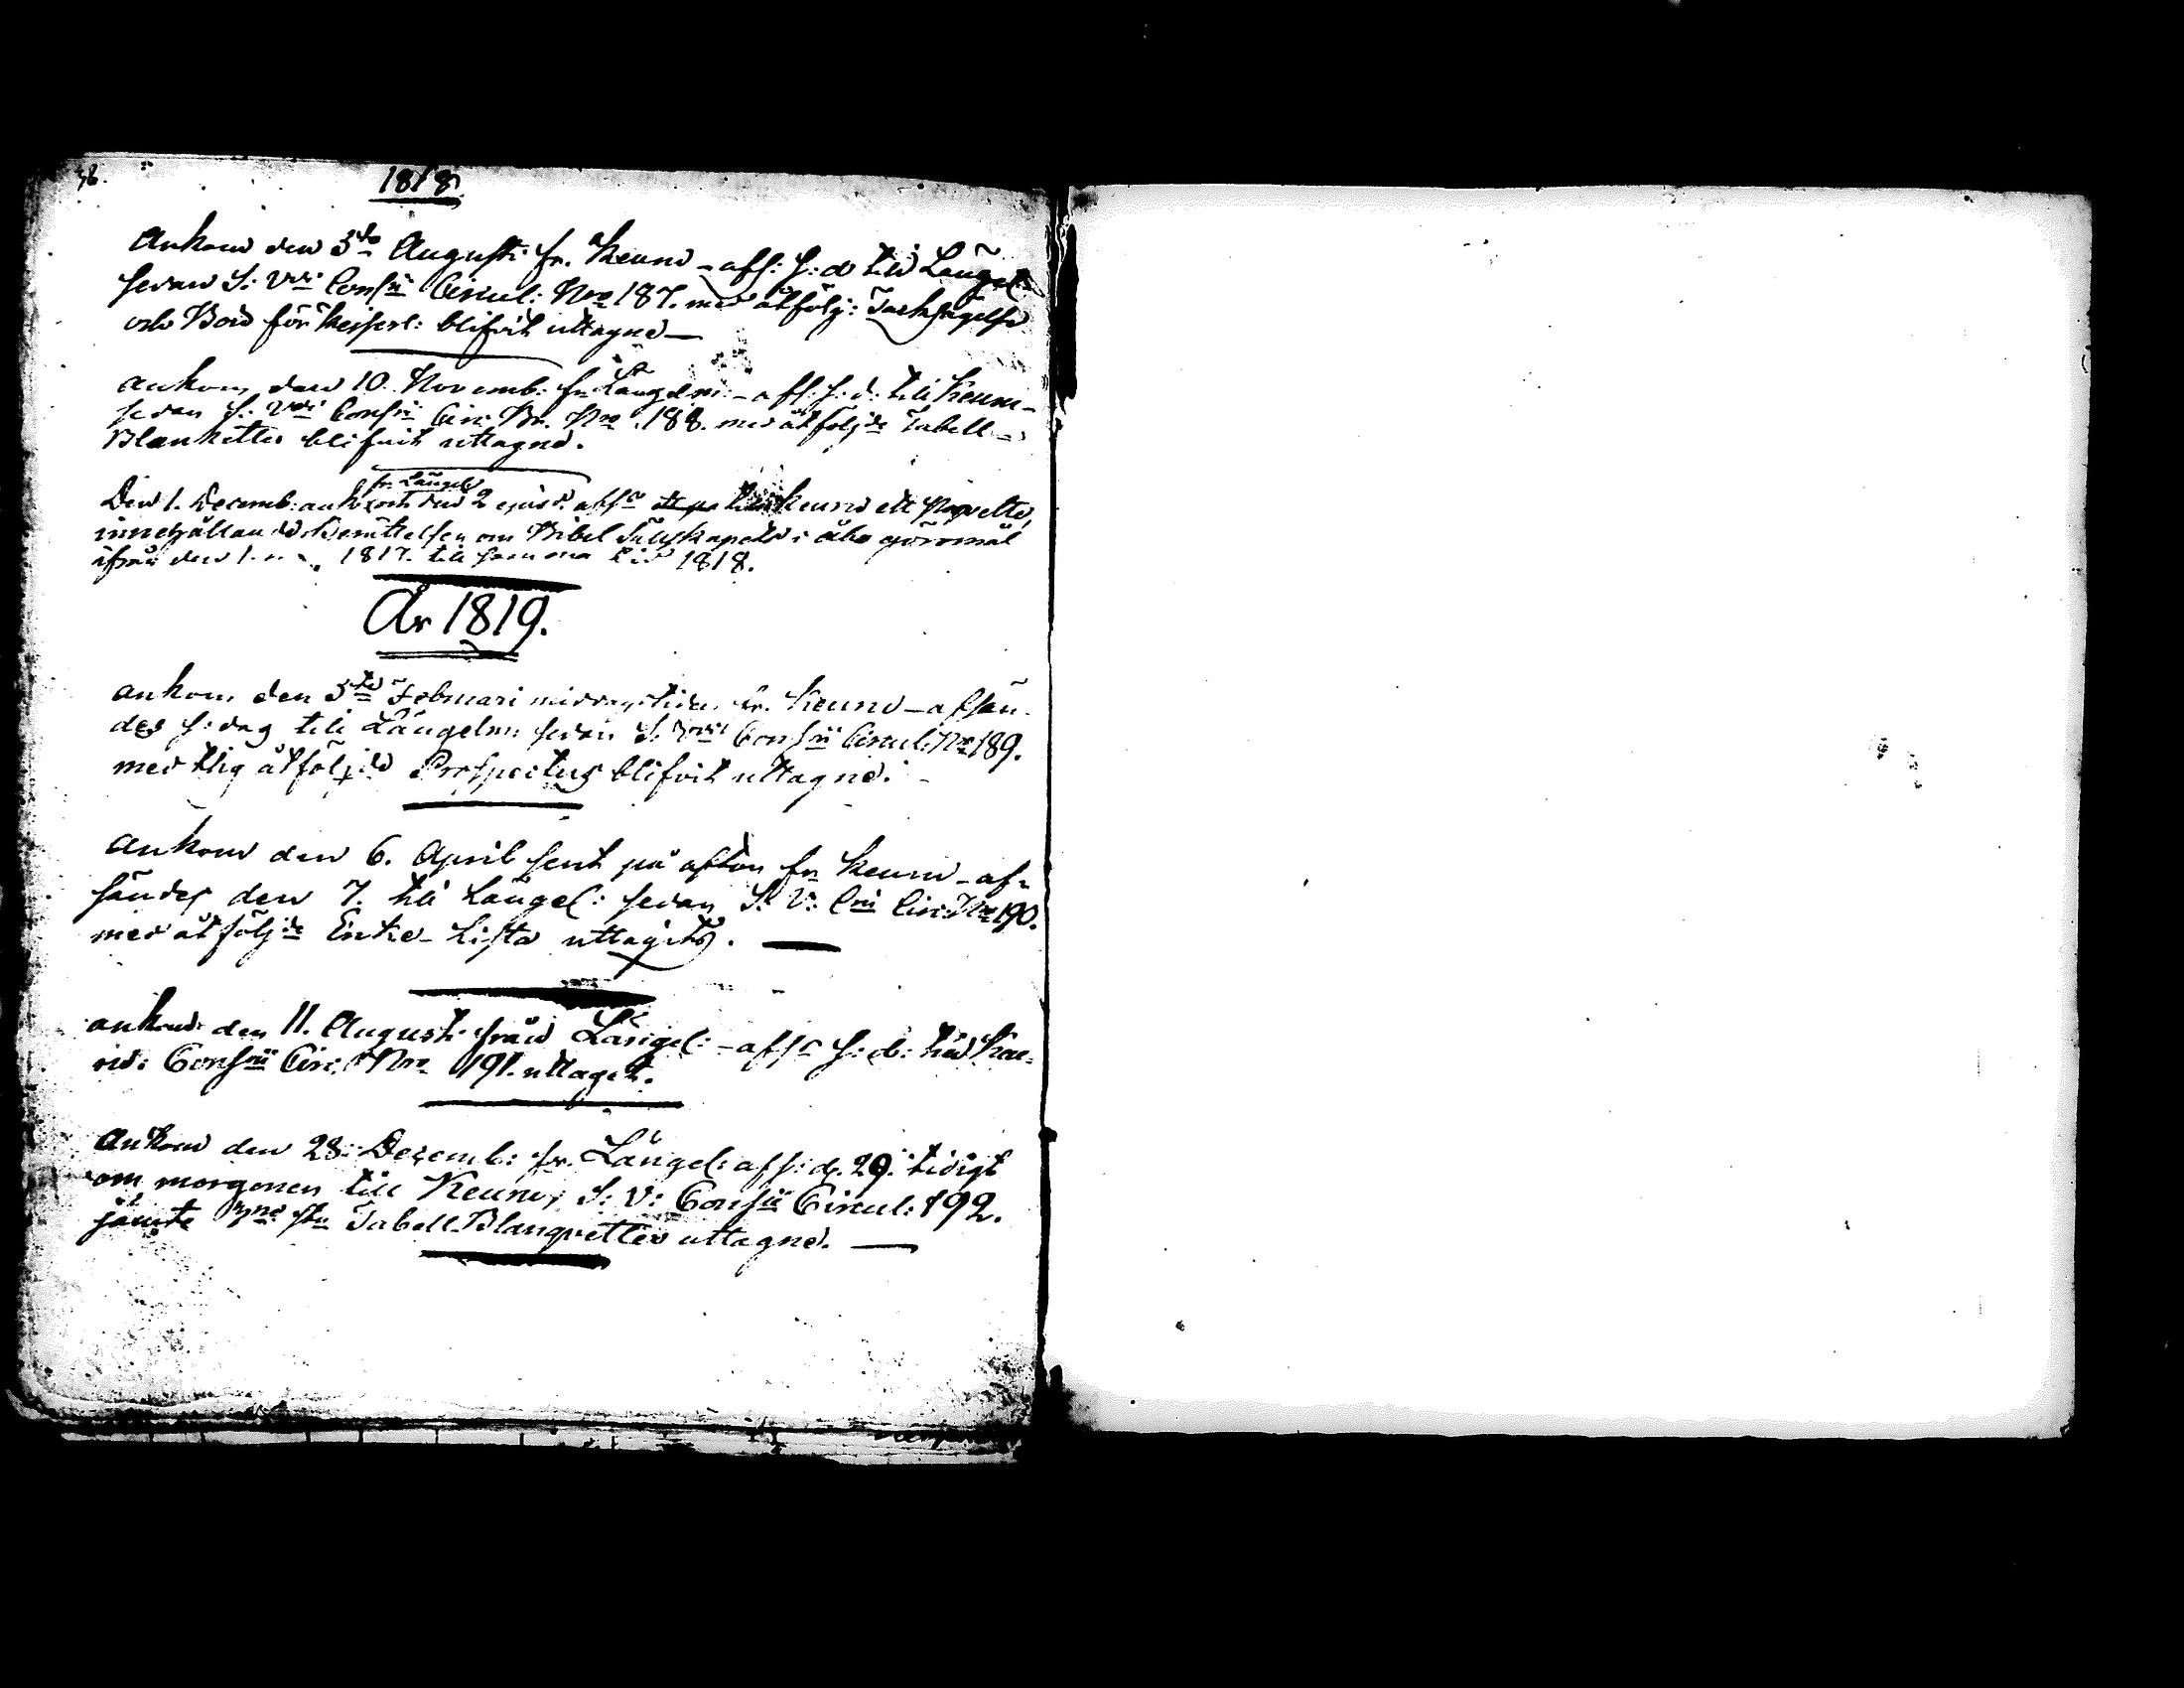 1818.
Ankom den 3do Augusti fr. Keuru - afs: s: d till Längel:
sedan S: Vdi Consii Circul: Nro 187. med åtfölj: Tacksägelse
och Bön för Keiserl: blifvit uttagne —
ankom den 10 Novemb: fr Längelm: - afs: s: d: till Keuru -
sedan S: Vdi Consii Circ: Br. Nro 188. med åtföljde Tabell -
Blanketter blifvit uttagne.
fr. Längel
Den 1. Decemb: ankom och den 2 ejusd. afsr till Keuru ett Paquette,
innehållande Berättelsen om Bibel Sällskapets i Åbo göromål
ifrån den 1. 1817. till samma tid 1818.
År 1819.
ankom den 3de Februari middagstiden fr. Keuru - afsän-
des s: dag till Längelm: sedan S. Vdi Consii Circul: Nro 189.
med tlig åtföljde Prospectus blifvit uttagne.
Ankom den 6. April sent på afton fr Keuru - af-
sändes den 7. till Längel: sedan S. V: Cii Circ: Nro 190.
med åtföljde Lista uttagits.
ankom den 11. Augusti från Längel: - afsr s: d: till Keu-
ru: Consii Circ: Nro 191. uttaget.
Ankom den 28: Decemb: fr. Längel: afs: d. 29. tidigt
om morgonen till Keuru, S: V: Consii Circul: 192.
jämte Tabell-Blanqvetter uttagne.